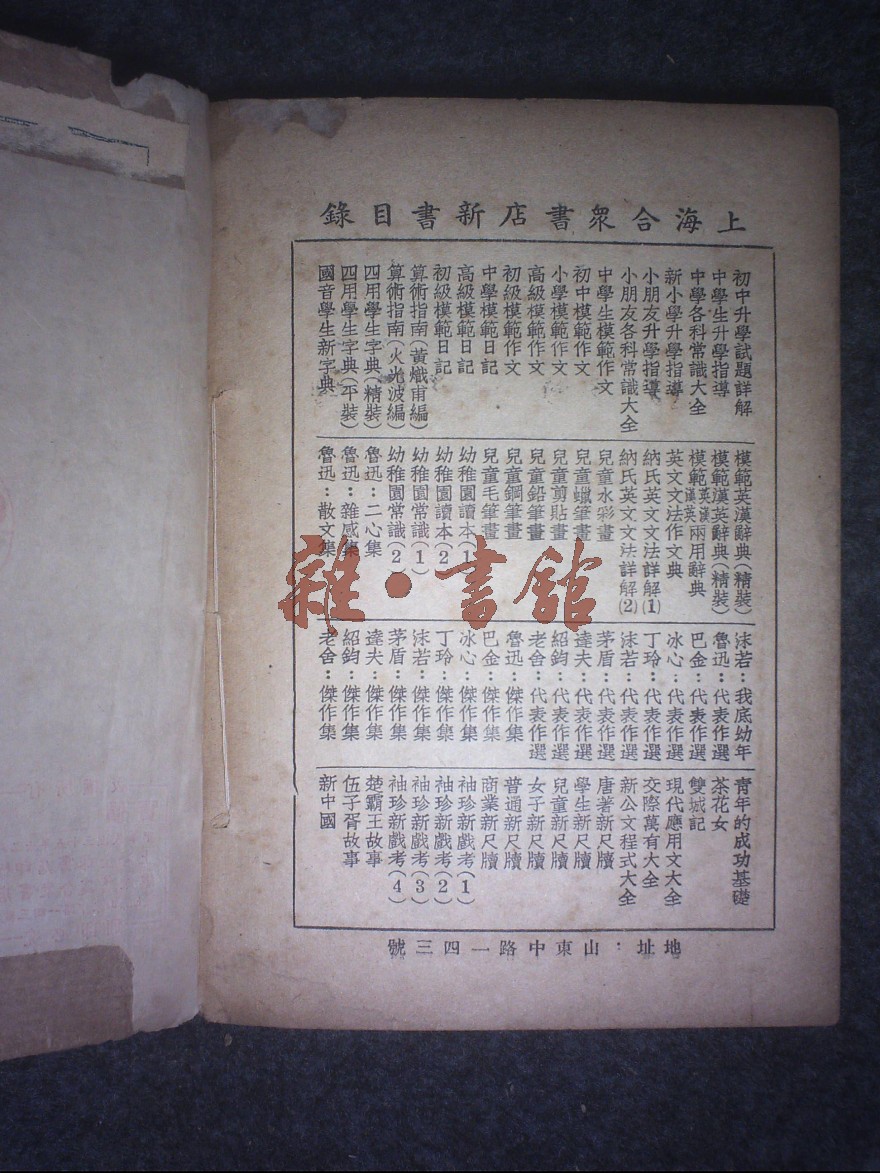 上海合衆書店新書目錄
初中升學試題詳解
中學生升學指導
中學各科常識大全
新小學升學指導
小朋友升學指導
小朋友各科常識大全
中學生模範作文
初中模範作文
小學模範作文
高級模範作文
初級模範作文
中學模範日記
高級模範日記
初級模範日記
算術指南(黃熾甫編)
算術指南(火光波編)
四用學生字典(精裝)
四用學生字典(平裝)
國音學生新字典
模範英漢辭典(精裝)
模範漢英辭典(精裝)
模範英漢漢英兩用辭典
英文文法作文典
納氏英文文法詳解(1)
納氏英文文法詳解(2)
兒童水彩畫
兒童蠟筆畫
兒童剪貼畫
兒童鉛筆畫
兒童鋼筆畫
兒童毛筆畫
幼稚園讀本(1
幼稚園讀本(2
幼稚園常識(1)
幼稚園常識(2)
魯迅:二心集
魯迅:雜感集
魯迅:散文集
沫若:我底幼年
魯迅:代表作選
巴金:代表作選
冰心:代表作選
丁玲:代表作選
沫若:代表作選
茅盾:代表作選
達夫:代表作選
紹鈞:代表作選
老舍:代表作選
魯迅:傑作集
巴金:傑作集
冰心:傑作集
丁玲:傑作集
沫若:傑作集
茅盾:傑作集
達夫:傑作集
紹鈞:傑作集
老舍:傑作集
青年的成功基礎
茶花女
雙城記
現代應用文大全
交際萬有大全
新公文程式大全
唐著新尺牘
學生新尺牘
兒童新尺牘
女子新尺牘
普通新尺牘
商業新尺牘
袖珍新戲考(1)
袖珍新戲考(2)
袖珍新戲考(3)
袖珍新戲考(4)
楚霸王故事
伍子胥故事
新中國
地址:山東中路一四三號
雜·書館